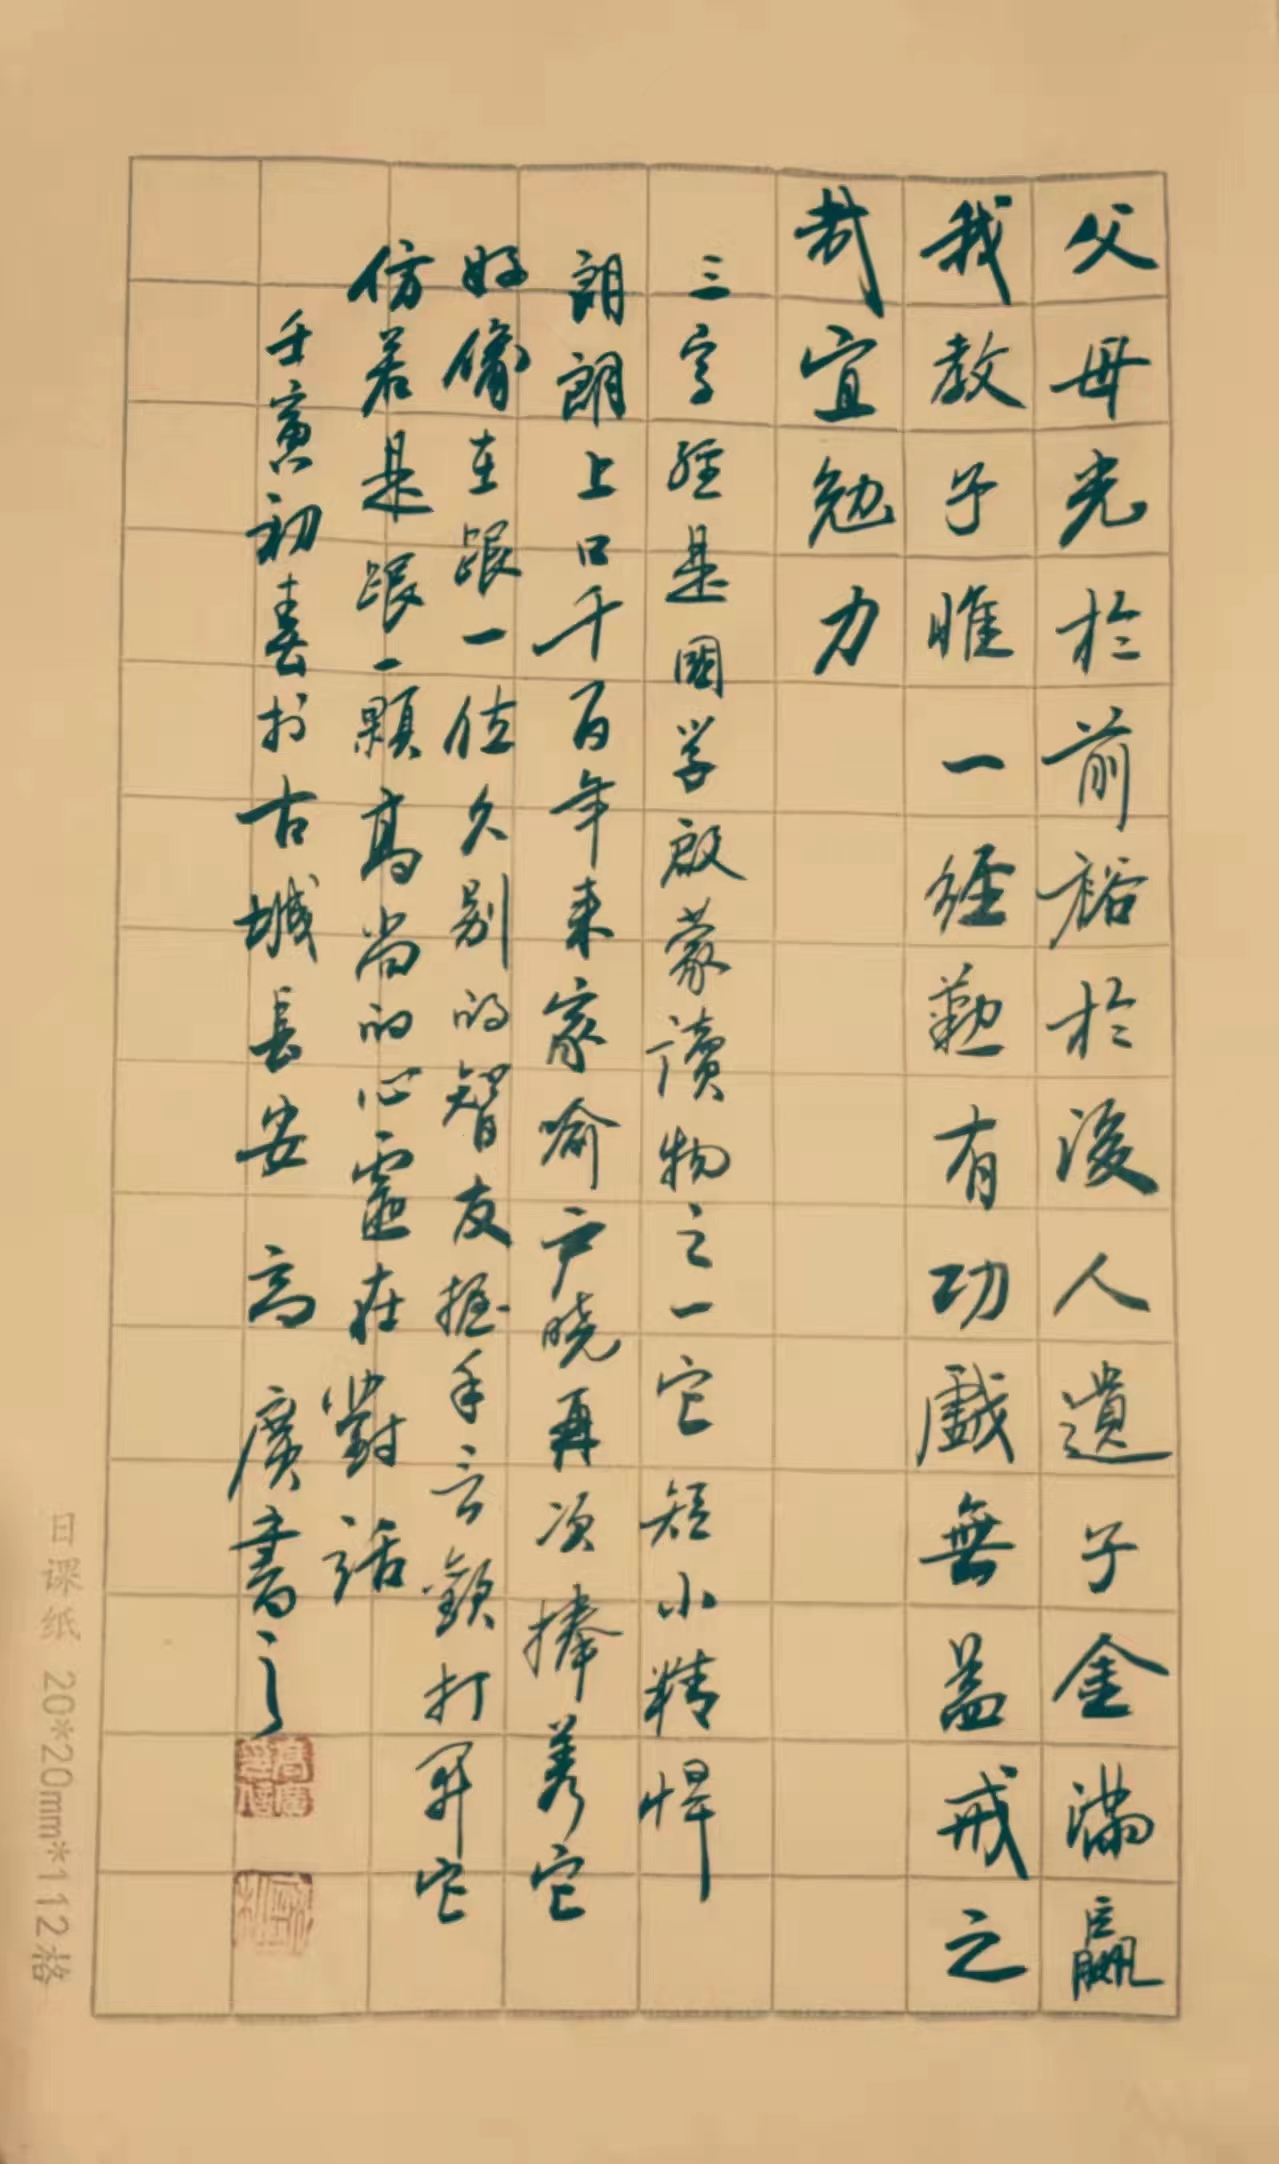 父母光於前裕於後人遺子金滿贏
我教子惟一經勤有功戲無益戒之
哉宜勉力
三字經是國学啟蒙讀物之一它短小精悍
朗朗上口千百年来家喻户晓再次捧着它
好像在跟一位久别的智友握手言歡打開它
仿若是跟一颗高尚的心靈在對話
壬寅初春於古城長安 高廣書之
日课纸 20*20mm*112格